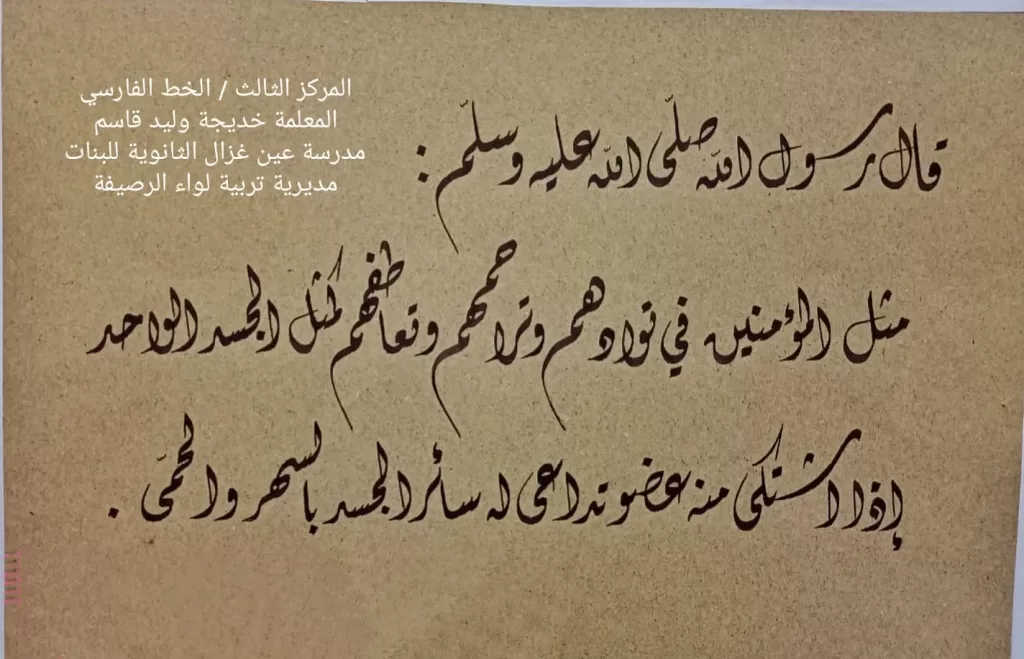 المركز الثالث / الخط الفارسي
المعلمة خديجة وليد قاسم
مدرسة عين غزال الثانوية للبنات
مديرية تربية لواء الرصيفة
قال رسول الله صلّى الله عليه وسلّم :
مثل المؤمنين في توادهم وتراحمهم وتعاطفهم كمثل الجسد الواحد
إذا اشتكى منه عضو تداعى له سائر الجسد بالسهر والحمّى .